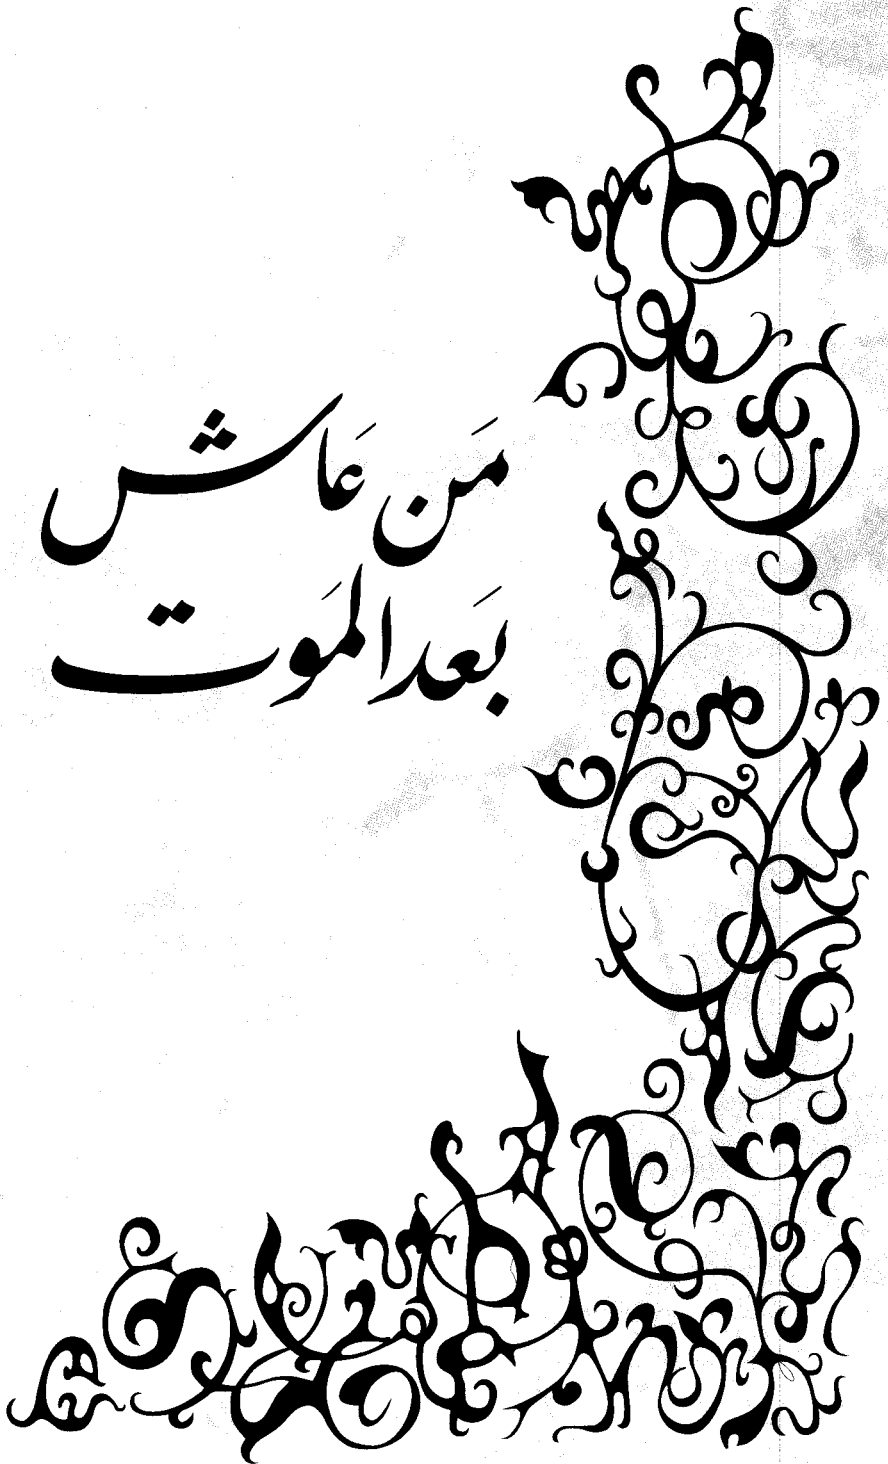 مَن عَاش
بَعد المَوت